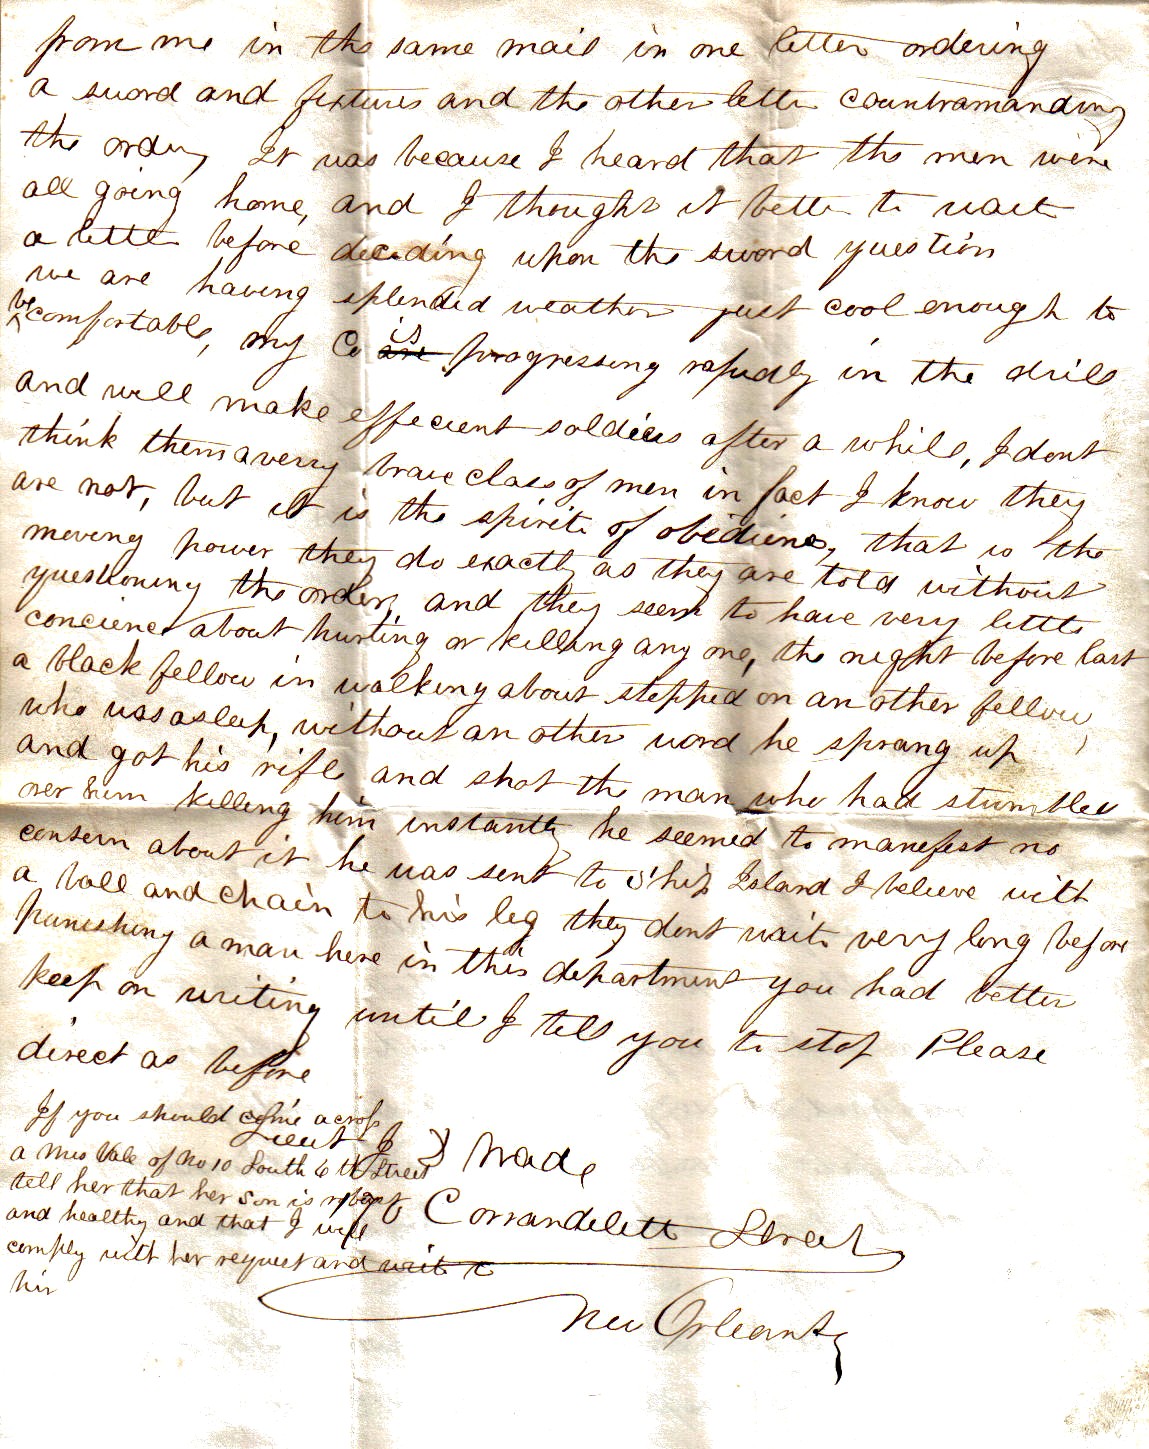 from me in the same mail in one letter ordering
a sword and fixtures and the other letter countramanding
the order, It was because I heard that the men were
all going home, and I thought it better to wait
a letter before deciding upon the sword question
we are having splended weather just cool enough to
be comfortable, my Co is are progressing rapudly in the drill
and will make effecient soldiers after a while, I dont
think them a verry brave class of men in fact I know they
are not, but it is the spirit of obedience, that is the
moving power they do exactly as they are told without
questioning the order, and they seem to have very little
concience about hurting or killing any one, the night before last
a black fellow in walking about stepped on an other fellow
who was asleep, without an other word he sprang up
and got his rifle and shot the man who had stumbled
over him killing him instantly he seemed to manefest no
consern about it he was sent to Ship Island I believe with
a ball and chain to his leg they dont wait very long before
punishing a man here in this department you had better
keep on writing until I tell you to stop Please
direct as before
Lieut J Wade
Corrandelett Street
New Orleans
If you should come across
a Mrs Vale of No 10 South 6th Street
tell her that her son is robust
and healthy and that I will
comply with her request and write to
him